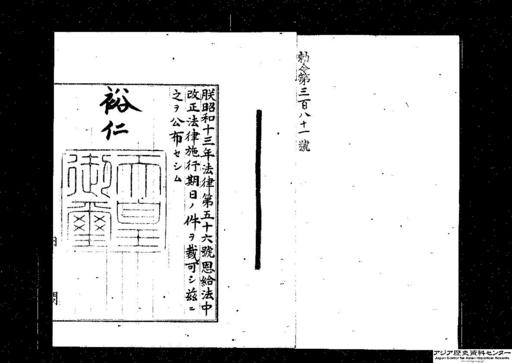 勅令第三百八十一號
朕昭和十三年法律第五十六號恩給法中
改正法律施行期日ノ件ヲ裁可シ茲ニ
之ヲ公布セシム
裕仁
天皇
御璽
内閣
アジア歴史資料センター
Japan Center for Asian Historical Records